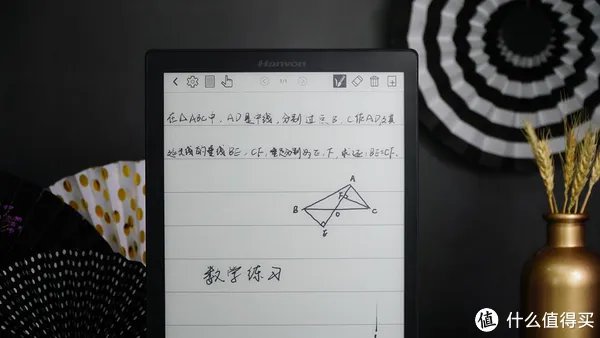 Hanvon
1/1
在△ABC中，AD是中线，分别过点B、C作AD及其
延长线的垂线BE、CF，垂足分别为E、F，求证：BE=CF.
A
F
B
D
C
E
数学练习
值 什么值得买